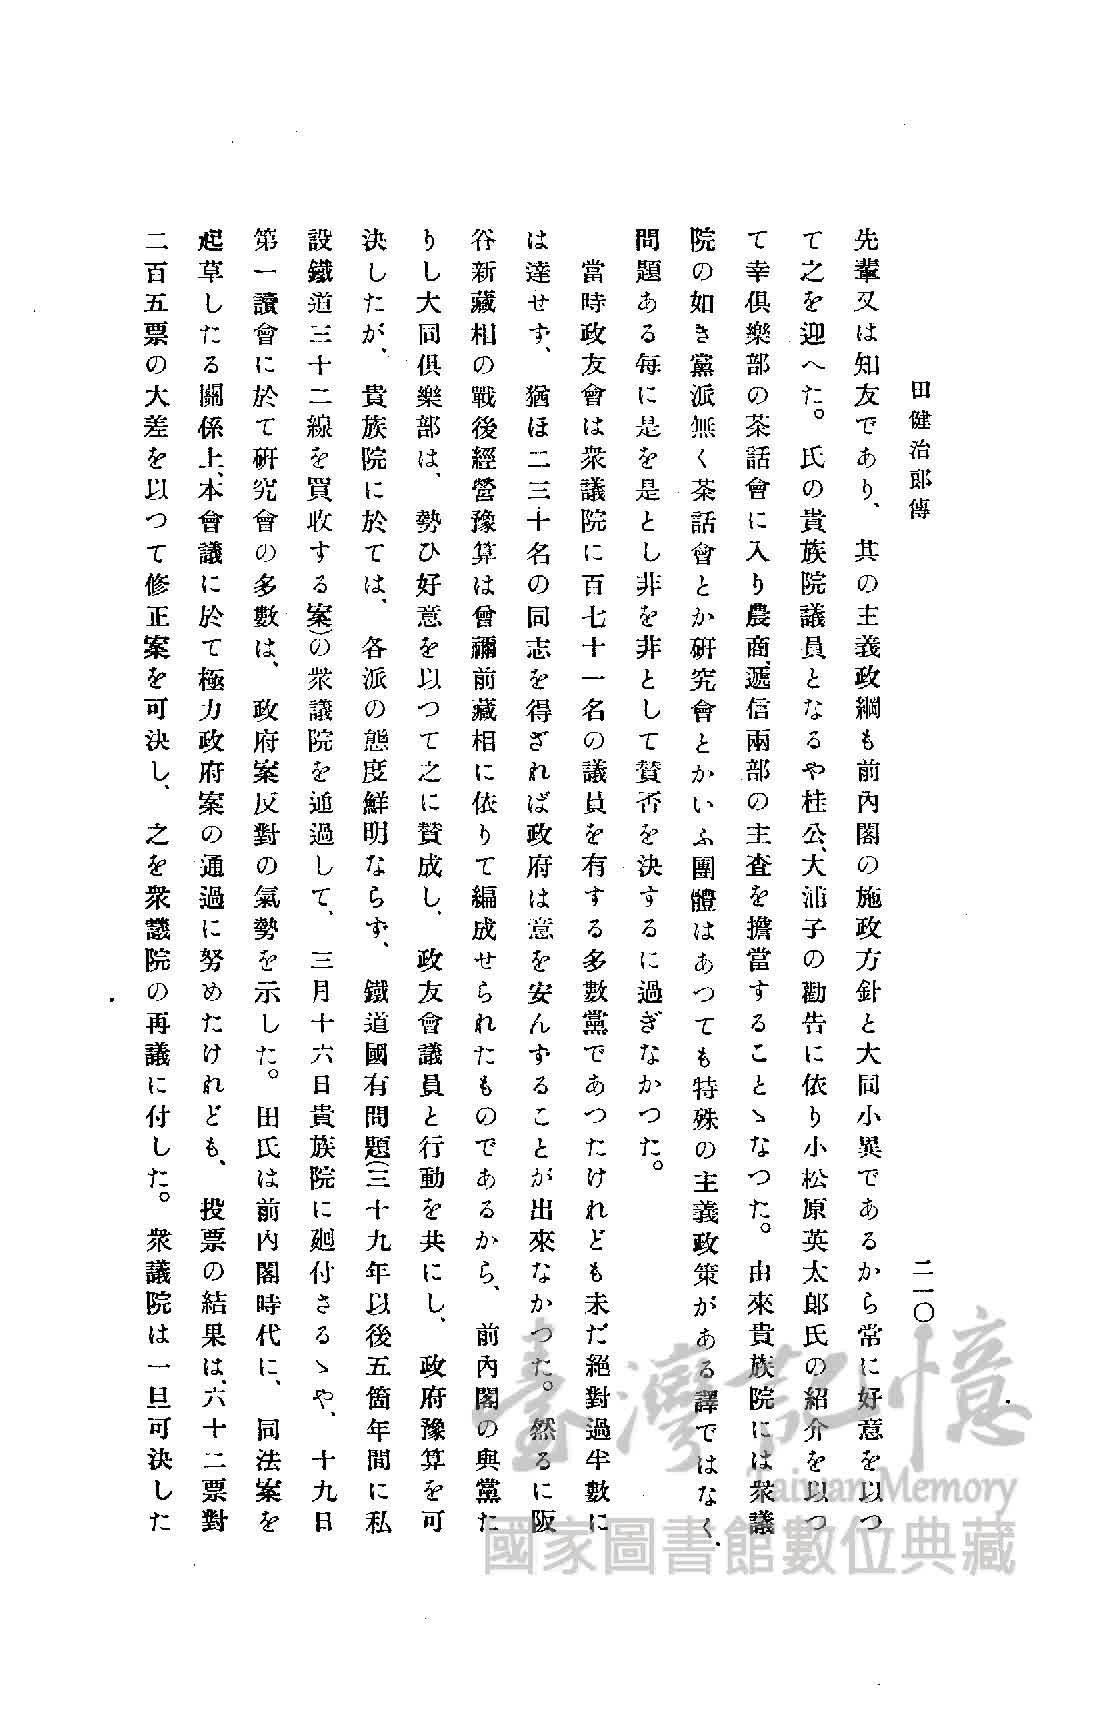 田健治郎傳
二一〇
先輩又は知友であり、其の主義政綱も前內閣の施政方針と大同小異であるから常に好意を以つ
て之を迎へた。氏の貴族院議員となるや桂公、大浦子の勸告に依り小松原英太郎氏の紹介を以つ
て幸俱樂部の茶話會に入り農商、遞信兩部の主査を擔當することゝなつた。由來貴族院には衆議
院の如き黨派無く茶話會とか硏究會とかいふ團體はあつても特殊の主義政策がある譯ではなく
問題ある每に是を是とし非を非として賛否を決するに過ぎなかつた。
當時政友會は衆議院に百七十一名の議員を有する多數黨であつたけれども未だ絕對過半數に
は達せず、猶ほ二三十名の同志を得ざれば政府は意を安んずることが出來なかつた。然るに阪
谷新藏相の戰後經營豫算は曾禰前藏相に依りて編成せられたものであるから、前內閣の與黨た
りし大同俱樂部は、勢ひ好意を以つて之に賛成し、政友會議員と行動を共にし、政府豫算を可
決したが、貴族院に於ては、各派の態度鮮明ならず、鐵道國有問題(三十九年以後五箇年間に私
設鐵道三十二線を買收する案)の衆議院を通過して、三月十六日貴族院に廻付さるゝや、十九日
第一讀會に於て硏究會の多數は、政府案反對の氣勢を示した。田氏は前內閣時代に、同法案を
起草したる關係上、本會議に於て極力政府案の通過に努めたけれども、投票の結果は、六十二票對
二百五票の大差を以つて修正案を可決し、之を衆議院の再議に付した。衆議院は一旦可決した
臺灣記憶
Taiwan Memory
國家圖書館數位典藏